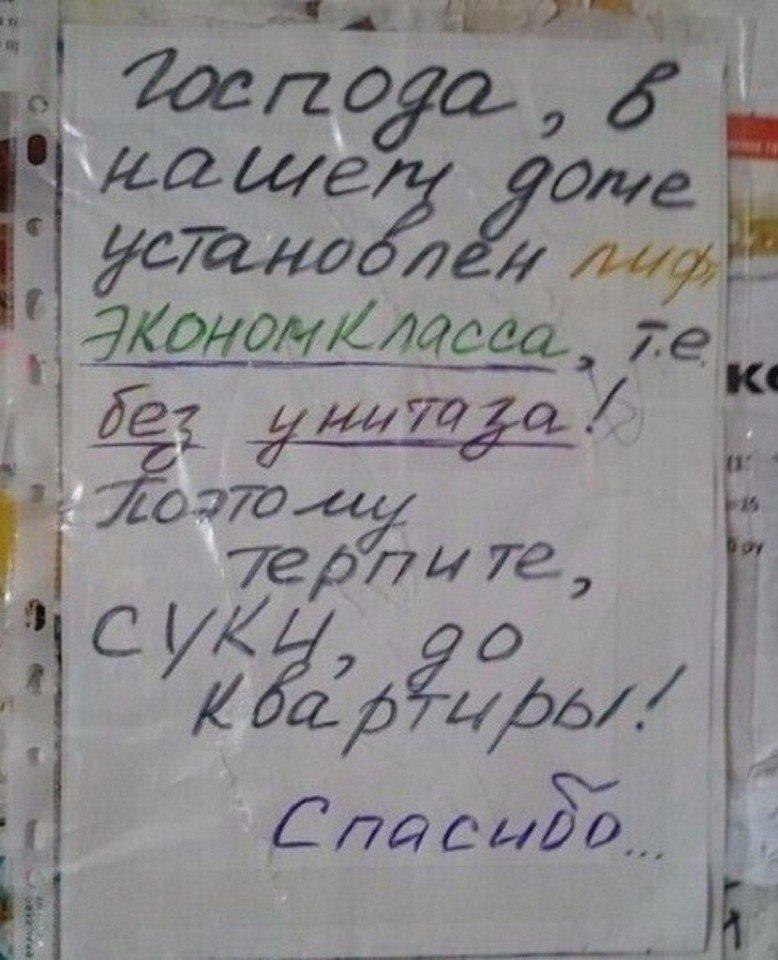 Господа, в
нашем доме
установлен лифт
экономкласса, т.е.
без унитаза!
Поэтому
терпите,
СУКИ, до
квартиры!
Спасибо...